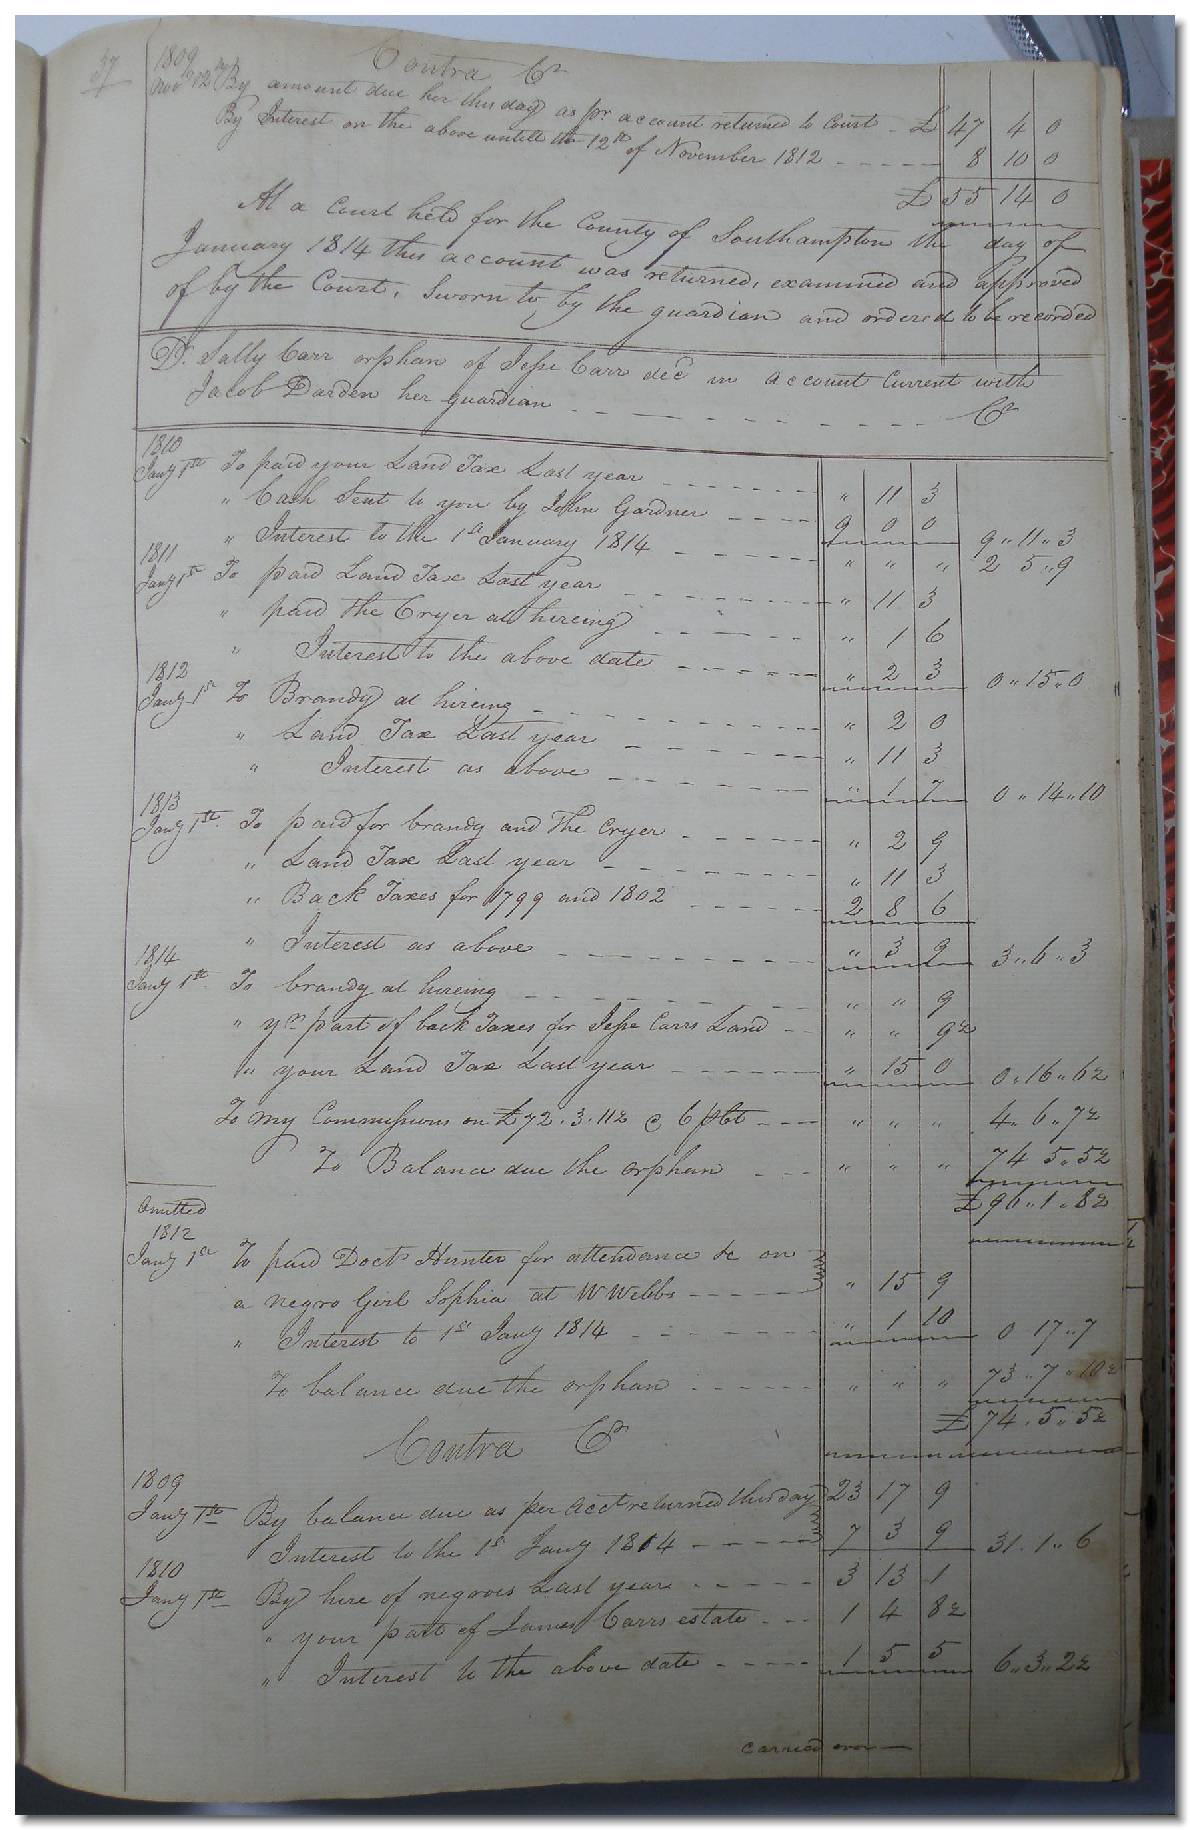 37
1809 Contra Cr
Novr 12th By amount due her this day as pr account returned to Court - £ 47 4 0
By Interest on the above untill the 12th of November 1812 - - - - - 8 10 0
£ 55 14 0
At a Court held for the County of Southampton the day of
January 1814 this account was returned, examined and approved
of by the Court, Sworn to by the guardian and ordered to be recorded
Dr. Sally Carr orphan of Jesse Carr decd in account Current with
Jacob Darden her guardian - - - - - - - - - Cr
1810
Jany 1st To paid your Land Tax Last year - - - - - - " 11 3
" Cash Sent to you by John Gardner - - - - 9 0 0 9 " 11 " 3
" Interest to the 1st January 1814 - - - - - " " " 2 5 " 9
1811
Jany 1st To paid Land Tax Last year - - - - - - - " 11 3
" paid the Cryer at hireing - - - - - - " 1 6
" Interest to the above date - - - - - " 2 3 0 " 15 " 0
1812
Jany 1st To Brandy at hireing - - - - - - - - - " 2 0
" Land Tax Last year - - - - - - " 11 3
" Interest as above - - - - - - " 1 7 0 " 14 " 10
1813
Jany 1st. To paid for brandy and the Cryer - - - - - " 2 9
" Land Tax Last year - - - - - - - " 11 3
" Back Taxes for 1799 and 1802 - - - - - 2 8 6
" Interest as above - - - - - - - - - " 3 9 3 " 6 " 3
1814
Jany 1st. To brandy at hireing - - - - - - - - " " 9
" yr part of back Taxes for Jesse Carrs Land - - " " 9½
" your Land Tax Last year - - - - - - " 15 0 0 " 16 " 6½
To my Commissions on £72 . 3 . 11½ @ 6 pCt - - - " " " 4 " 6 " 7½
To Balance due the orphan - - - " " " 74 5 " 5½
£90 " 1 " 8½
Omitted
1812
Jany 1st To paid Doctr Hunter for attendance &c on
a negro Girl Sophia at W Webbs - - - - - " 15 9
" Interest to 1st Jany 1814 - - - - - - " 1 10 0 17 " 7
To balance due the orphan - - - - - " " " 73 " 7 " 10½
£ 74 . 5 " 5½
Contra Cr
1809
Jany 1st By balance due as per acct returned this day 23 17 9
Interest to the 1st Jany 1814 - - - - - 7 3 9 31 . 1 " 6
1810
Jany 1st By hire of negroes Last year - - - - - 3 13 1
" your part of James Carrs estate - - - 1 4 8½
" Interest to the above date - - - - - 1 5 5 6 " 3 " 2½
carried over